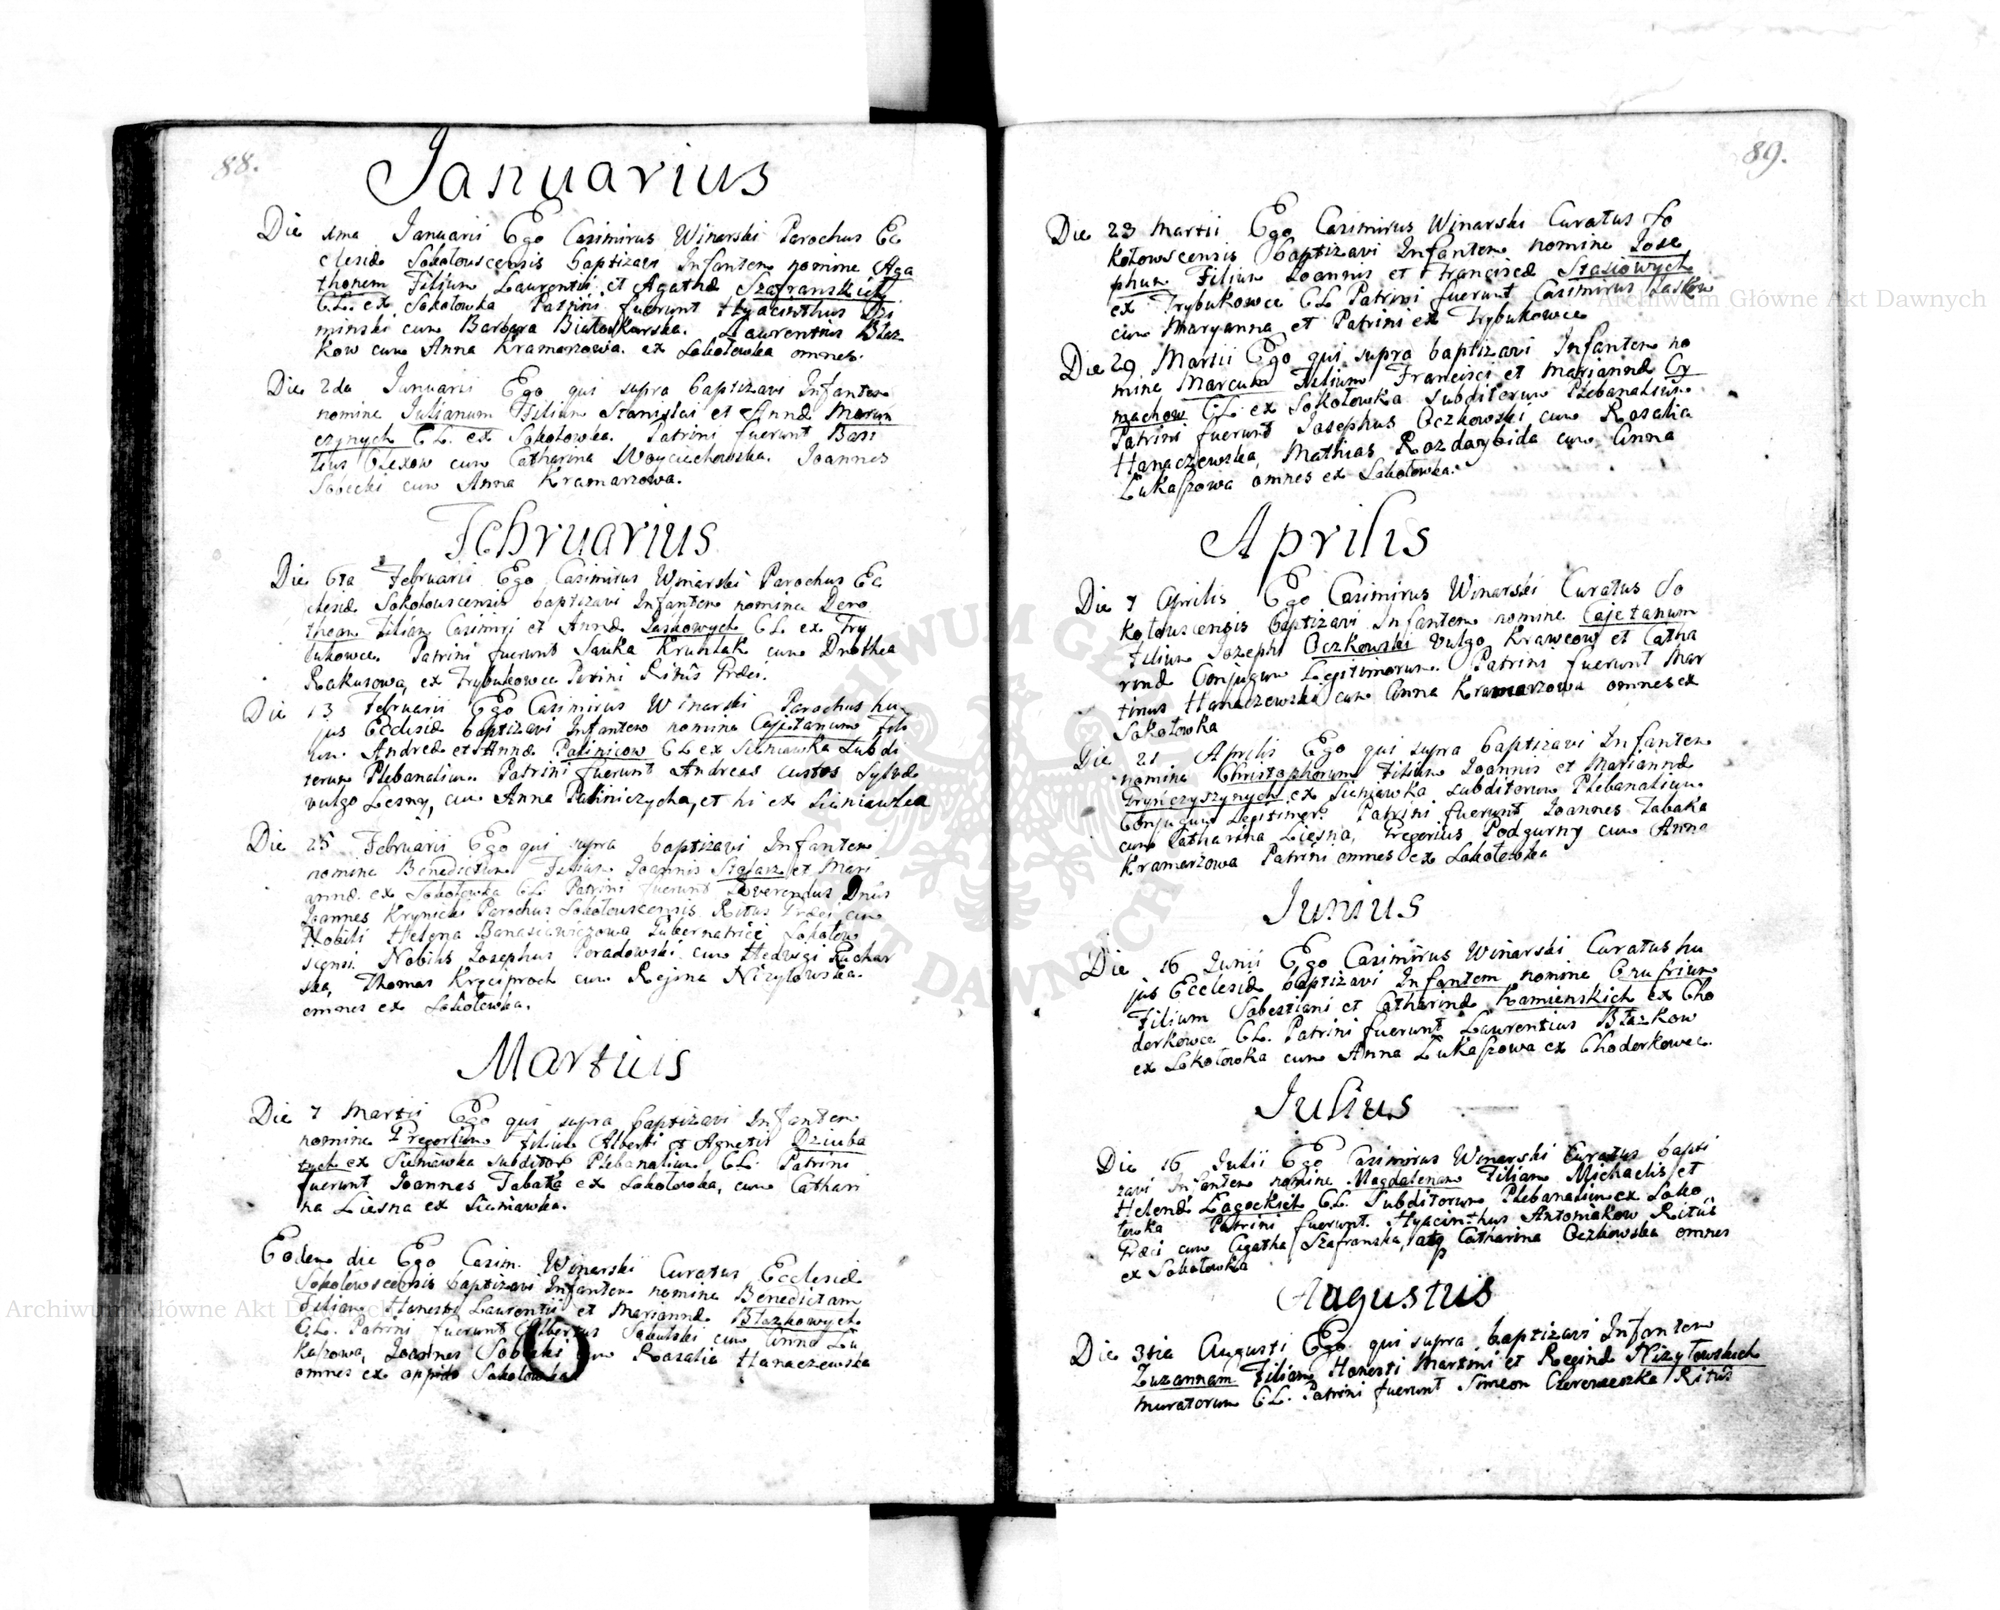 88.
Januarius
Die 1ma Januarii Ego Casimirus Winarski Parochus Ec
clesiæ Sokołoviscensis baptizavi Infantem nomine Aga
thonem Filium Laurentii et Agathæ Szafranskich
CL. ex Sokołowka Patrini fuerunt Hyacinthus
minski cum Barbara Białoskurska. Laurentius Błaz
kow cum Anna Kramarzowa. ex Sokołowka omnes.
Die 2da Januarii Ego qui supra baptizavi Infantem
nomine Julianum Filium Stanislai et Annæ Marcin
czynych CL. ex Sokołowka. Patrini fuerunt Basi
lius Olexow cum Catharina Woyciechowska. Joannes
Sobecki cum Anna Kramarzowa.
Februarius
Die 6ta Februarii Ego Casimirus Winarski Parochus Ec
clesiæ Sokołouscensis baptizavi Infantem nomine Doro
theam Filiam Casimiri et Annæ Laskowych CL. ex Try
bukowce. Patrini fuerunt Sauka Kruhlak cum Dorothea
Rakusowa, ex Trybukowce Patrini Ritûs Græci.
Die 13 Februarii Ego Casimirus Winarski Parochus hu
jus Ecclesiæ baptizavi Infantem nomine Cajetanum Fili
um Andreæ et Annæ Palinicow CL ex Sieniawka Subdi
torum Plebanalium. Patrini fuerunt Andreas custos Sylvæ
vulgo Lesny, cum Anna Paliniczycha, et hi ex Sieniawka
Die 25 Februarii Ego qui supra baptizavi Infantem
nomine Benedictum Filium Joannis Stolarz et Mari
annæ ex Sokołowka CL Patrini fuerunt Reverendus Dnûs
Joannes Krynicki Parochus Sokołouscensis Ritus Græci cum
Nobili Helena Banasiewiczowa Gubernatrice Sokołow
scensi. Nobilis Josephus Poradowski cum Hedvigi Kuchar
ska, Thomas Kręciproch cum Regina Nizytowska.
omnes ex Sokołowka.
Martius
Die 7 Martii Ego qui supra baptizavi Infantem
nomine Gregorium Filium Alberti et Agnetis Dziuba
tych ex Sieniawka subditor Plebanalium CL. Patrini
fuerunt Joannes Tabaka ex Sokołowka, cum Cathari
na Liesna ex Sieniawka.
Eodem die Ego Casim. Winarski Curatus Ecclesiæ
Sokołowscensis baptizavi Infantem nomine Benedictam
Filiam Honesti Laurentii et Mariannæ Błazkowych
CL. Patrini fuerunt Albertus Sakulski cum Anna Lu
kaszowa, Joannes Sobecki cum Rosalia Hanaczewska
omnes ex oppido Sokołowka
89.
Die 23 Martii Ego Casimirus Winarski Curatus So
kołowscensis baptizavi Infantem nomine Jose
phum Filium Joannis et Franciscæ Stasiowych
ex Trybukowce CL Patrini fuerunt Casimirus Laskow
cum Maryanna et Patrini ex Trybukowce
Die 29 Martii Ego qui supra baptizavi Infantem no
mine Marcum Filium Francisci et Mariannæ Cy
machow CL. ex Sokołowka Subditorum Plebanalium
Patrini fuerunt Josephus Oczkowski cum Rosalia
Hanaczewska, Mathias Rozdarybida cum Anna
Lukaszowa omnes ex Sokołowka.
Aprilis
Die 7 Aprilis Ego Casimirus Winarski Curatus So
kołouscensis baptizavi Infantem nomine Cajetanum
Filium Josephi Oczkowski vulgo Krawcow et Catha
rinæ Conjugum Legitimorum. Patrini fuerunt Mar
tinus Hanaczewski cum Anna Kramarzowa omnes ex
Sokołowka
Die 21 Aprilis Ego qui supra baptizavi Infantem
nomine Christophorum Filium Joannis et Mariannæ
Gryńczyszynych ex Sieniawka Subditorum Plebanalium
Conjugum Legitimor: Patrini fuerunt Joannes Tabaka
cum Catharina Liesna, Gregorius Podgurny cum Anna
Kramarzowa Patrini omnes ex Sokołowka
Junius
Die 16 Junii Ego Casimirus Winarski Curatus hu
jus Ecclesiæ baptizavi Infantem nomine Onufrium
Filium Sabestiani et Catharinæ Kamienskich ex Cho
dorkowce CL. Patrini fuerunt Laurentius Błazkow
ex Sokołowka cum Anna Lukaszowa ex Chodorkowce.
Julius
Die 16 Julii Ego Casimirus Winarski Curatus bapti
zavi Infantem nomine Magdalenam Filiam Michaelis et
Helenæ Lagockich CL. Subditorum Plebanalium ex Soko
łowka Patrini fuerunt. Hyacinthus Antoniakow Ritûs
Græci cum Agatha Szafranska, atq Catharina Oczkowska omnes
ex Sokołowka
Augustus
Die 3tia Augusti Ego qui supra baptizavi Infantem
Zuzannam Filiam Honesti Martini et Reginæ Nizytowskich
muratorum CL. Patrini fuerunt Simeon Ritûs
Archiwum Główne Akt Dawnych
Archiwum Główne Akt Dawnych
ARCHIWUM GŁÓWNE AKT DAWNYCH